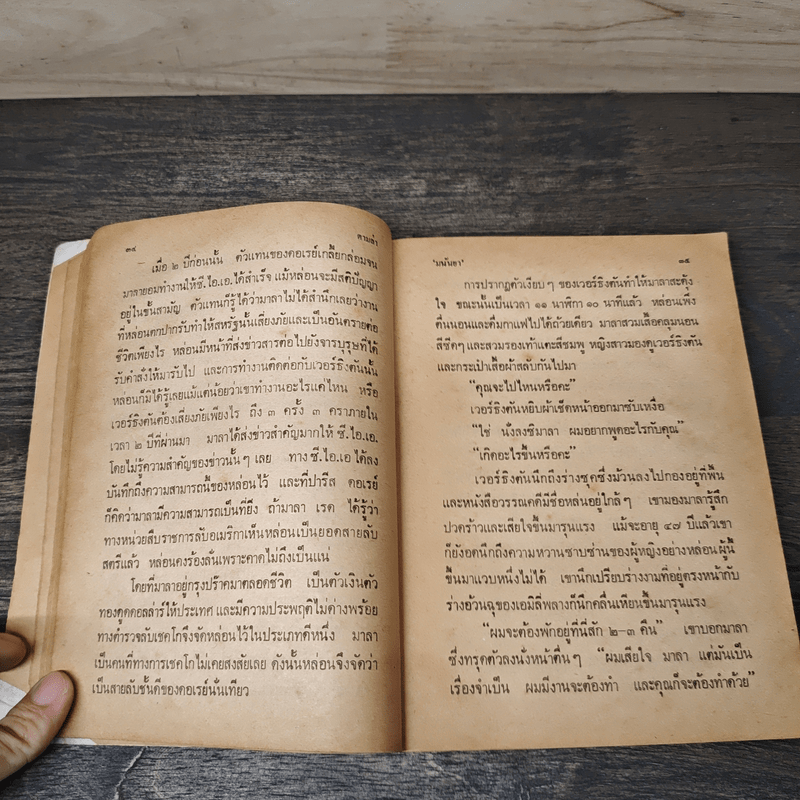 ๓๔ ตามล่า
เมื่อ ๒ ปีก่อนนั้น ตัวแทนของดอเรย์เกลี้ยกล่อมจน
มาลายอมทำงานให้ซี.ไอ.เอ.ได้สำเร็จ แม้หล่อนจะมีสติปัญญา
อยู่ในขั้นสามัญ ตัวแทนก็รู้ได้ว่ามาลาไม่ได้สำนึกเลยว่างาน
ที่หล่อนตกปากรับทำให้สหรัฐนั้นเสี่ยงภัยและเป็นอันตรายต่อ
ชีวิตเพียงไร หล่อนมีหน้าที่ส่งข่าวสารต่อไปยังจารบุรุษที่ได้
รับคำสั่งให้มารับไป และการทำงานติดต่อกับเวอร์ธิงตันนั้น
หล่อนก็มิได้รู้เลยแม้แต่น้อยว่าเขาทำงานอะไรแค่ไหน หรือ
เวอร์ธิงตันต้องเสี่ยงภัยเพียงไร ถึง ๓ ครั้ง ๓ คราภายใน
เวลา ๒ ปีที่ผ่านมา มาลาได้ส่งข่าวสำคัญมากให้ ซี.ไอ.เอ.
โดยไม่รู้ความสำคัญของข่าวนั้นๆ เลย ทาง ซี.ไอ.เอ ได้ลง
บันทึกถึงความสามารถนี้ของหล่อนไว้ และที่ปารีส ดอเรย์
ก็คิดว่ามาลามีความสามารถเป็นที่ยิ่ง ถ้ามาลา เรด ได้รู้ว่า
ทางหน่วยสืบราชการลับอเมริกาเห็นหล่อนเป็นยอดสายลับ
สตรีแล้ว หล่อนคงร้องลั่นเพราะคาดไม่ถึงเป็นแน่
โดยที่มาลาอยู่กรุงปร๊าคมาตลอดชีวิต เป็นตัวเงินตัว
ทองดูดดอลล่าร์ให้ประเทศ และมีความประพฤติไม่ด่างพร้อย
ทางตำรวจลับเชคโกจึงจัดหล่อนไว้ในประเภทดีหนึ่ง มาลา
เป็นคนที่ทางการเชคโกไม่เคยสงสัยเลย ดังนั้นหล่อนจึงจัดว่า
เป็นสายลับชั้นดีของดอเรย์นั่นเทียว
'มนันยา' ๓๕
การปรากฏตัวเงียบๆ ของเวอร์ธิงตันทำให้มาลาสะดุ้ง
ใจ ขณะนั้นเป็นเวลา ๑๑ นาฬิกา ๑๐ นาทีแล้ว หล่อนเพิ่ง
ตื่นนอนและดื่มกาแฟไปได้ถ้วยเดียว มาลาสวมเสื้อคลุมนอน
สีซีดๆ และสวมรองเท้าแตะสีชมพู หญิงสาวมองดูเวอร์ธิงตัน
และกระเป๋าเสื้อผ้าสลับกันไปมา
"คุณจะไปไหนหรือคะ"
เวอร์ธิงตันหยิบผ้าเช็ดหน้าออกมาซับเหงื่อ
"ใช่ นั่งลงซิมาลา ผมอยากพูดอะไรกับคุณ"
"เกิดอะไรขึ้นหรือคะ"
เวอร์ธิงตันนึกถึงร่างชุดซึ่งม้วนลงไปกองอยู่ที่พื้น
และหนังสือวรรณคดีมีชื่อหล่นอยู่ใกล้ๆ เขามองมาลารู้สึก
ปวดร้าวและเสียใจขึ้นมารุนแรง แม้จะอายุ ๔๗ ปีแล้วเขา
ก็ยังอดนึกถึงความหวานซาบซ่านของผู้หญิงอย่างหล่อนผู้นี้
ขึ้นมาแวบหนึ่งไม่ได้ เขานึกเปรียบร่างงามที่อยู่ตรงหน้ากับ
ร่างอ้วนฉุของเอมิลี่พลางก็นึกคลื่นเหียนขึ้นมารุนแรง
"ผมจะต้องพักอยู่ที่นี่สัก ๒-๓ คืน" เขาบอกมาลา
ซึ่งทรุดตัวลงนั่งหน้าตื่นๆ "ผมเสียใจ มาลา แต่มันเป็น
เรื่องจำเป็น ผมมีงานจะต้องทำ และคุณก็จะต้องทำด้วย"